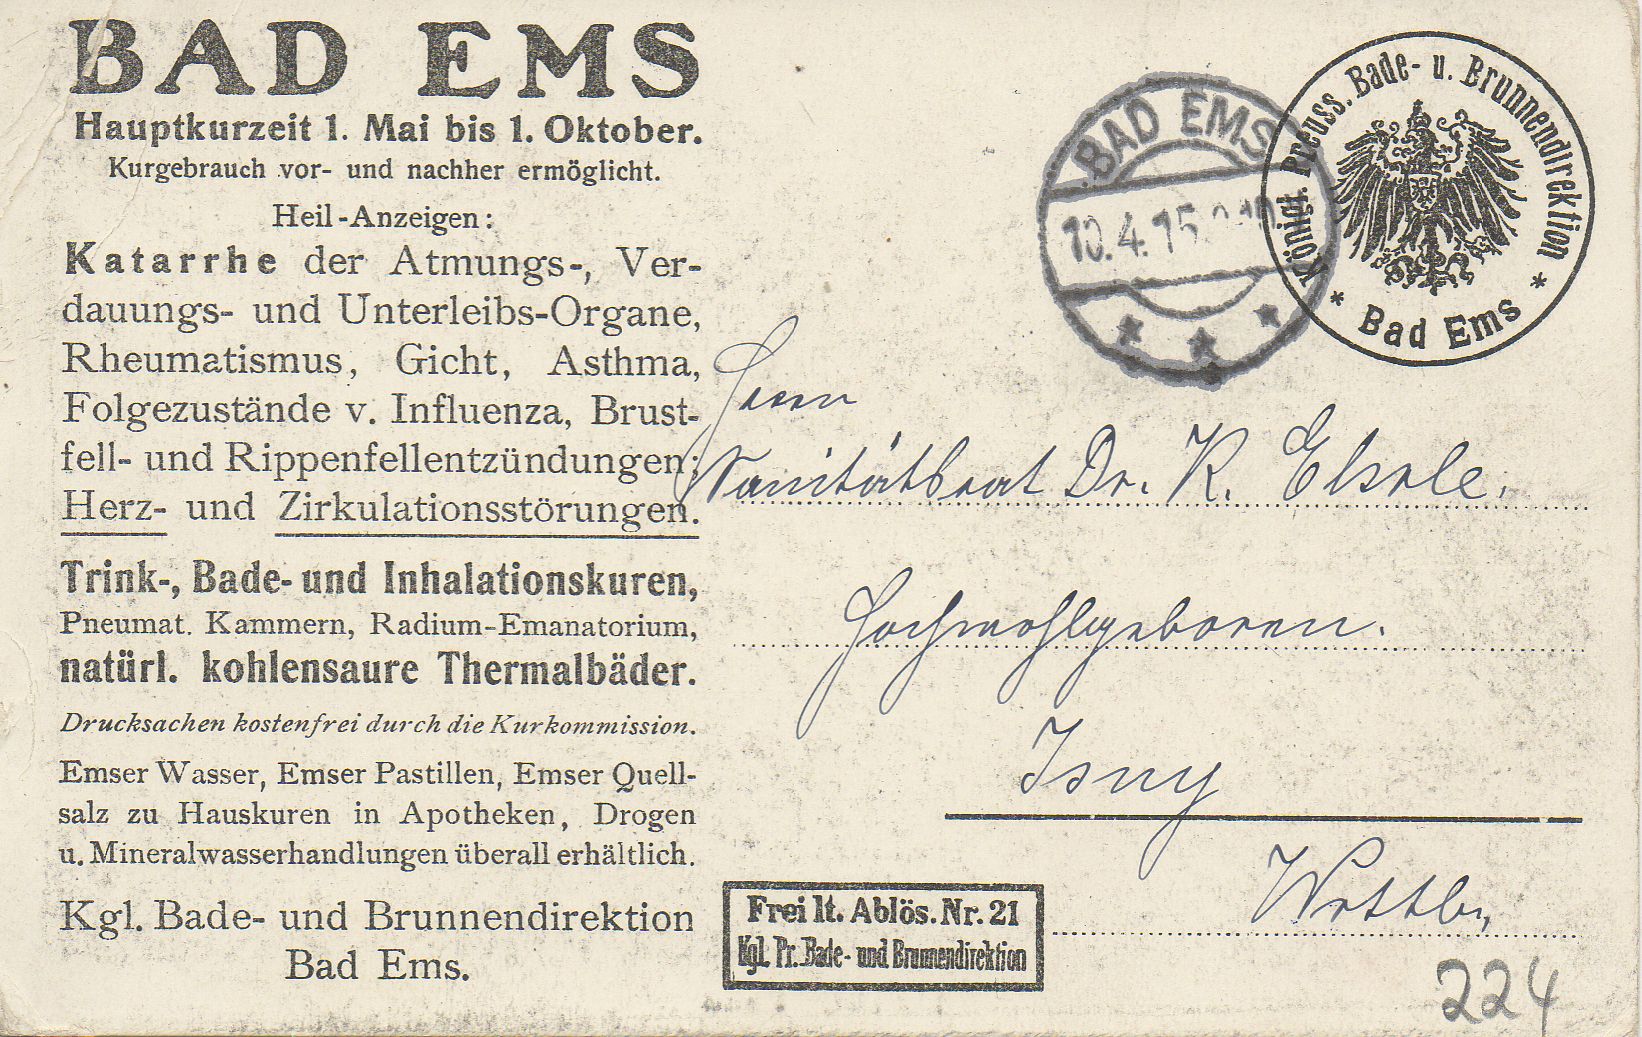 BAD EMS
Hauptkurzeit 1. Mai bis 1. Oktober.
Kurgebrauch vor- und nachher ermöglicht.
Heil-Anzeigen:
Katarrhe der Atmungs-, Ver-
dauungs- und Unterleibs-Organe,
Rheumatismus, Gicht, Asthma,
Folgezustände v. Influenza, Brust-
fell- und Rippenfellentzündungen;
Herz- und Zirkulationsstörungen.
Trink-, Bade- und Inhalationskuren,
Pneumat. Kammern, Radium-Emanatorium,
natürl. kohlensaure Thermalbäder.
Drucksachen kostenfrei durch die Kurkommission.
Emser Wasser, Emser Pastillen, Emser Quell-
salz zu Hauskuren in Apotheken, Drogen
u. Mineralwasserhandlungen überall erhältlich.
Kgl. Bade- und Brunnendirektion
Bad Ems.
BAD EMS
10.4.15
Königl. Preuss. Bade- u. Brunnendirektion
* Bad Ems *
Herrn
Sanitätsrat Dr. K.
Hochwohlgeboren.
Isny
Wrttbg,
Frei lt. Ablös. Nr. 21
Kgl. Pr. Bade- und Brunnendirektion
224